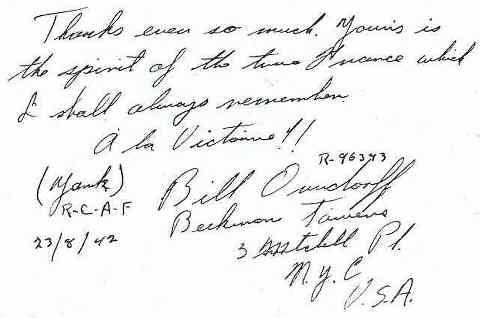 Thanks ever so much. Yours is
the spirit of the true France which
I shall always remember.
A la Victoire!!
R-96393
(Yank)
R-C-A-F
23/8/42
Bill Orndorff
Beekman Towers
3 Mitchell Pl.
N.Y.C
U.S.A.